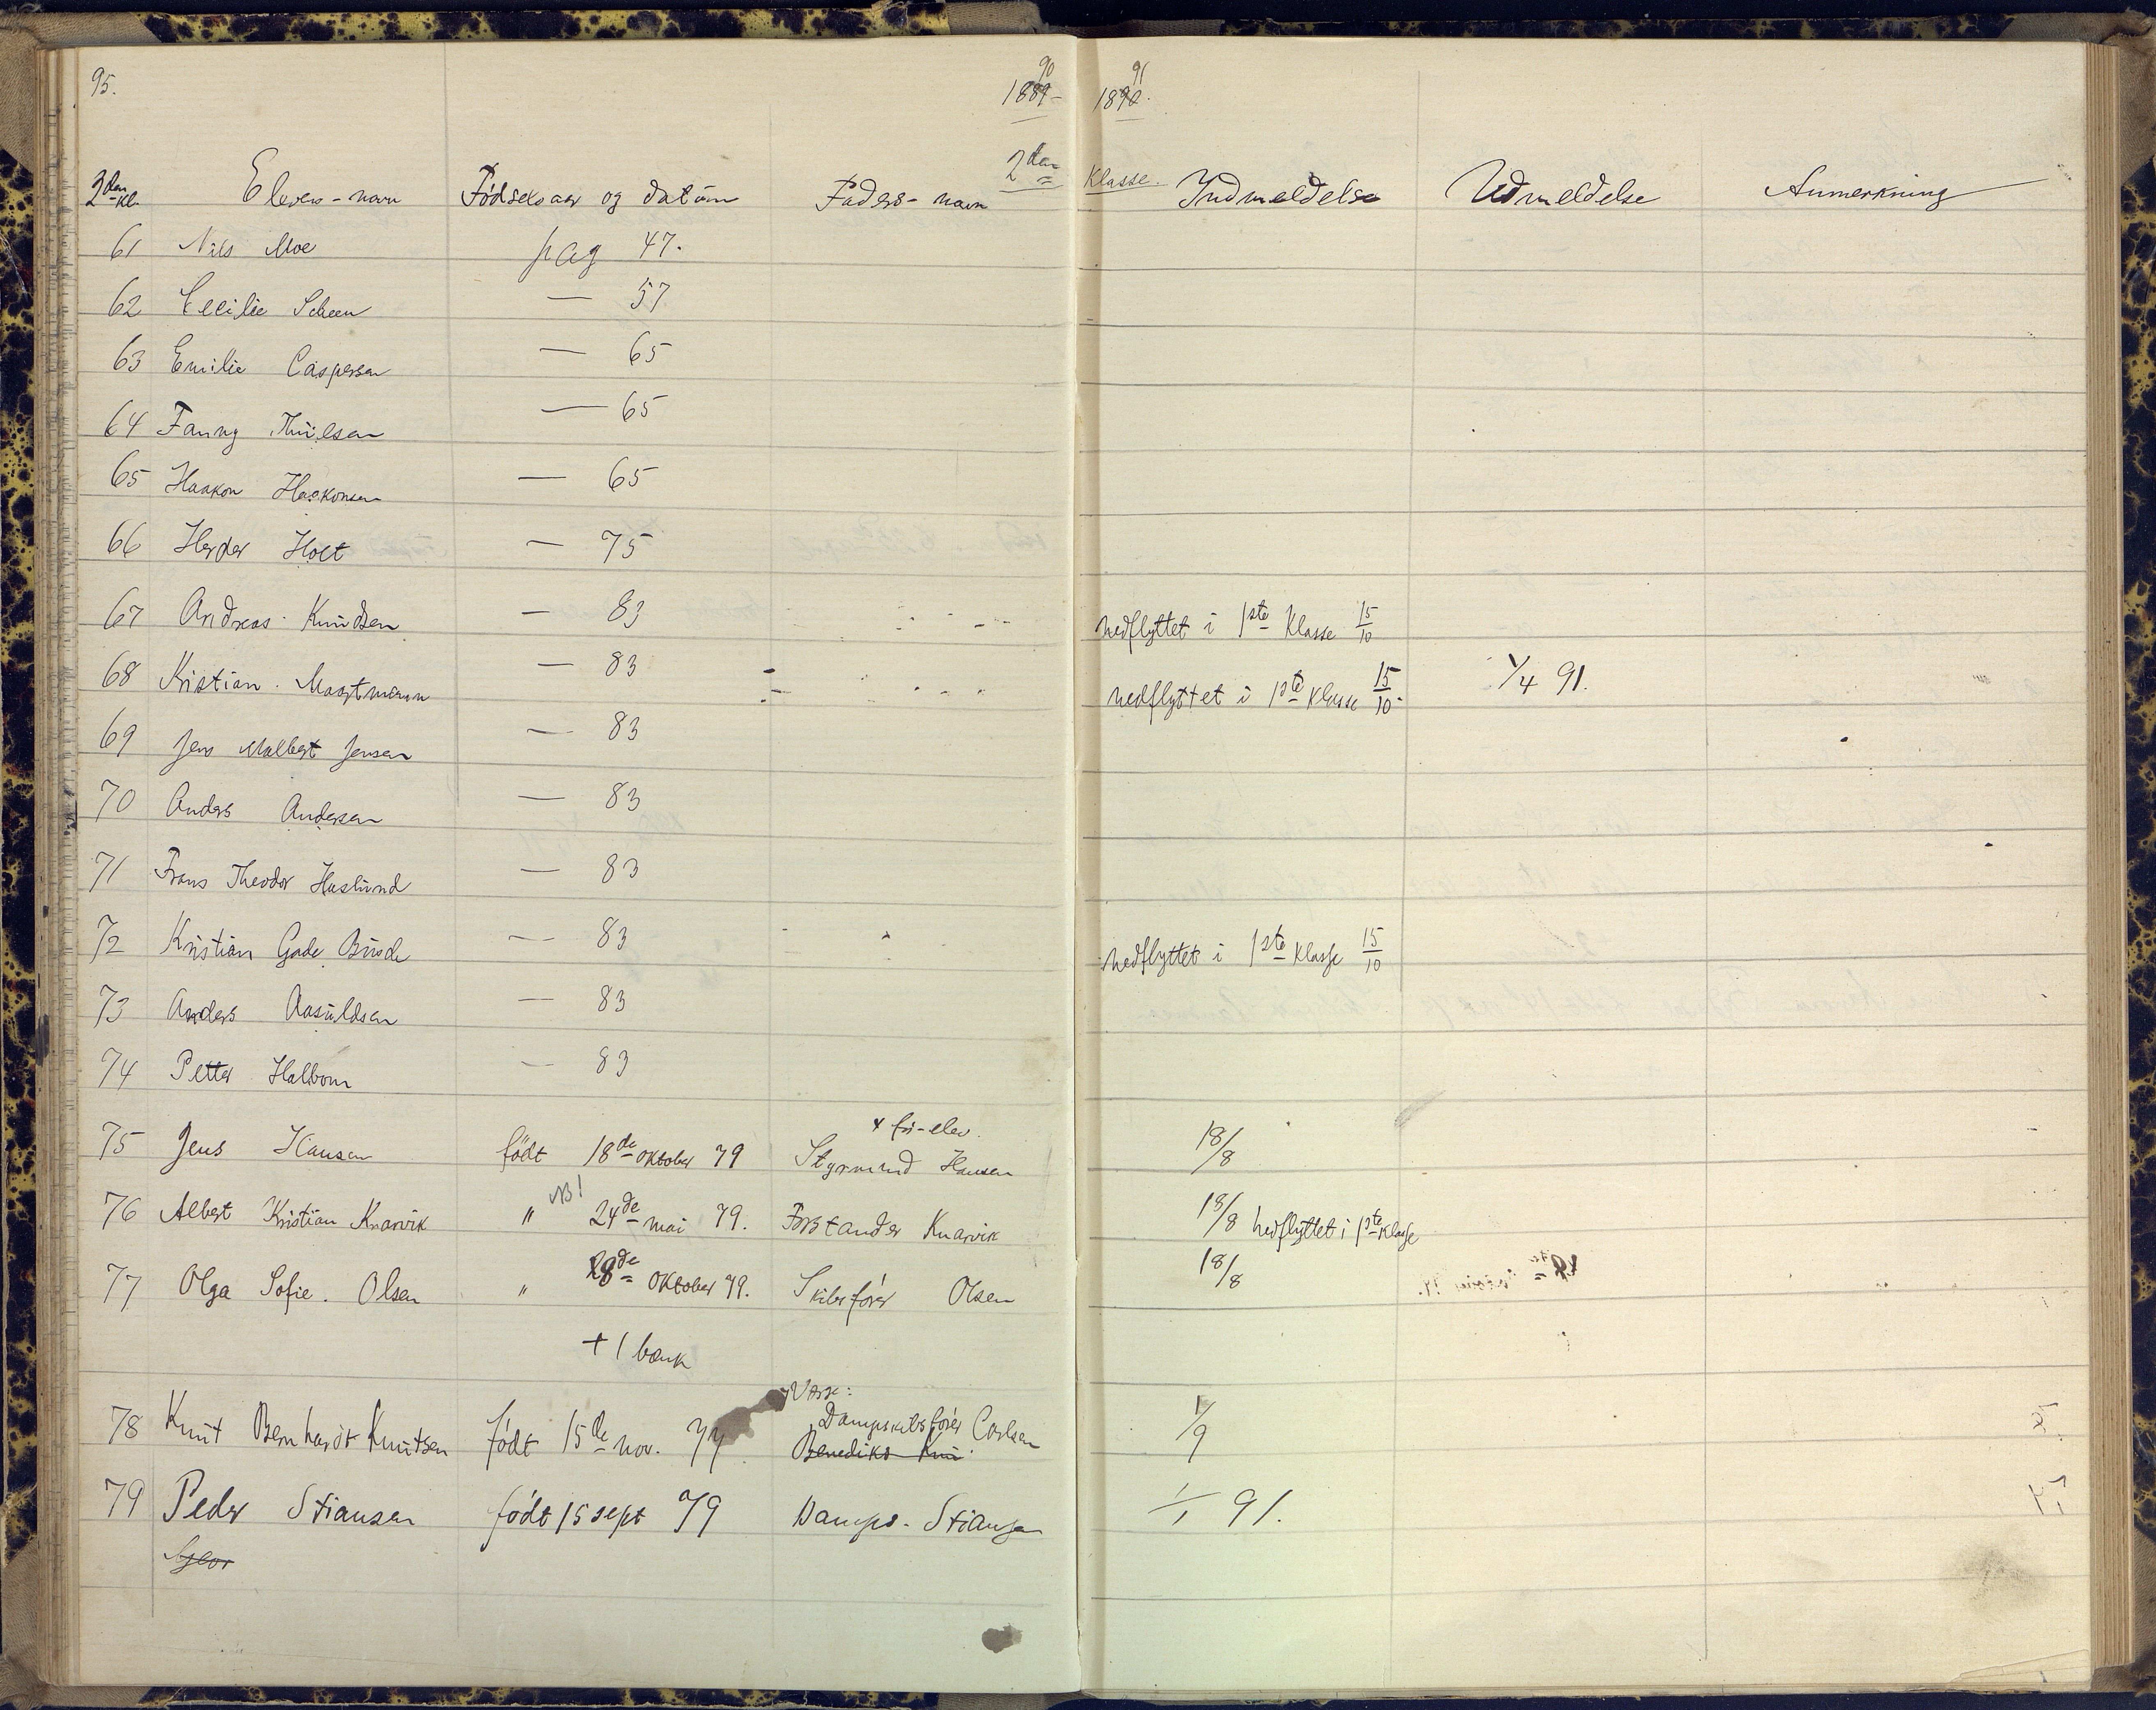 95.
90 91
1889- 1890.
2den Klasse.
2den kl. Elevens-navn Fødselsaar og datum Faders-navn Indmeldelse Udmeldelse Anmerkning
61 Nils Moe pag 47.
62 Cecilie Scheen — 57
63 Emilie Caspersen — 65
64 Fanny — 65
65 Haakon Haakonsen — 65
66 Herder Holt — 75
67 Andreas Knudsen — 83 nedflyttet i 1ste Klasse 15/10
68 Kristian — 83 nedflyttet i 1ste Klasse 15/10 1/4 91.
69 Jens Jensen — 83
70 Anders Andersen — 83
71 Frans Theodor Haslund — 83
72 Kristian Gade — 83 nedflyttet i 1ste Klasse 15/10
73 Anders Aasuldsen — 83
74 Petter Halborn — 83
75 Jens Hansen født 18de oktober 79 Styrmand Hansen 18/8
76 Albert Kristian Knarvik NB! " 24de mai 79. Forstander Knarvik 18/8 nedflyttet i 1ste klasse
77 Olga Sofie. Olsen " 28de oktober 79. Skibsfører Olsen 18/8
+ 1 bænk
78 Knut Bernhardt Knutsen født 15de nov. 77 Dampskibsfører Carlsen 1/9
Benediks Knu
79 Peder Stiansen født 15 sept 79 Damps. Stiansen 1/1 91.